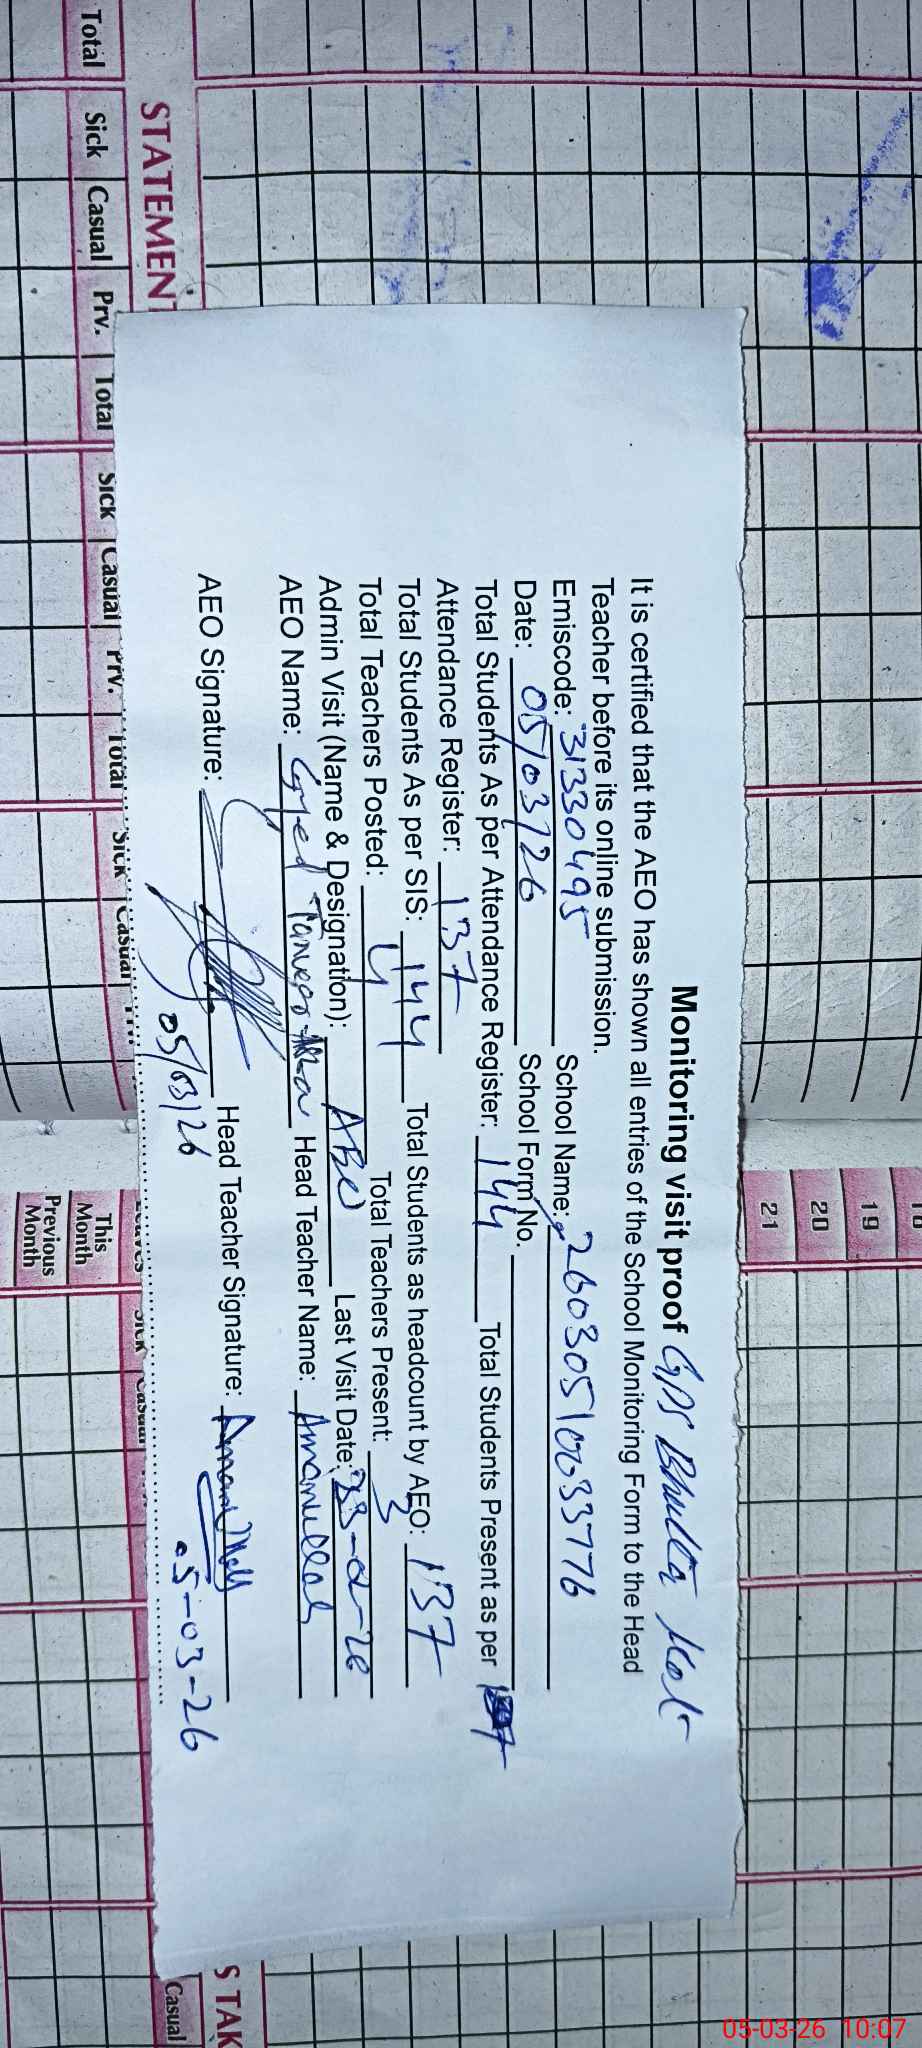 Monitoring visit proof GPS Bhutta
It is certified that the AEO has shown all entries of the School Monitoring Form to the Head
Teacher before its online submission.
Emiscode: 31330495 School Name: 26030510033776
Date: 05/03/26 School Form No.
Total Students As per Attendance Register: 144 Total Students Present as per
Attendance Register: 137
Total Students As per SIS: 144 Total Students as headcount by AEO: 137
Total Teachers Posted: 4 Total Teachers Present: 3
Admin Visit (Name & Designation): Last Visit Date:
AEO Name: Syed Head Teacher Name: Amanullah
AEO Signature: Head Teacher Signature:
05/03/26 05-03-26
STATEMENT
Total Sick Casual Prv. Total Sick Casual Prv. Total Sick Casual
19
20
21
This Month
Previous Month
Sick Casual
S TAK
Casual
05-03-26 10:07